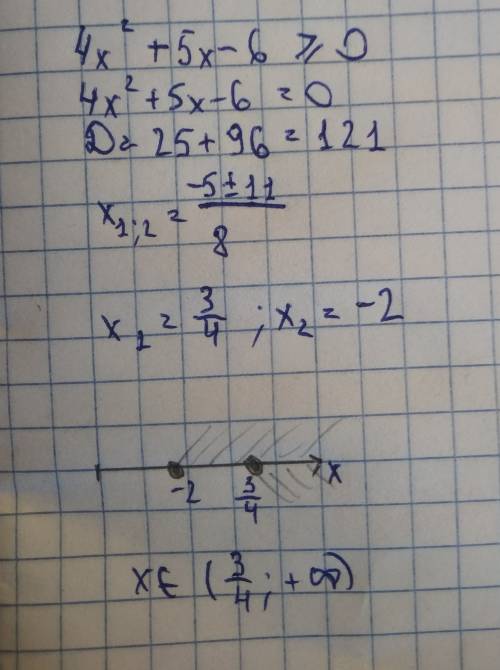 4x² + 5x - 6 ≥ 0
4x² + 5x - 6 = 0
D = 25 + 96 = 121
x₁;₂ = (-5 ± 11)/8
x₁ = 3/4 ; x₂ = -2
-2 3/4 x
x ∈ (3/4; +∞)